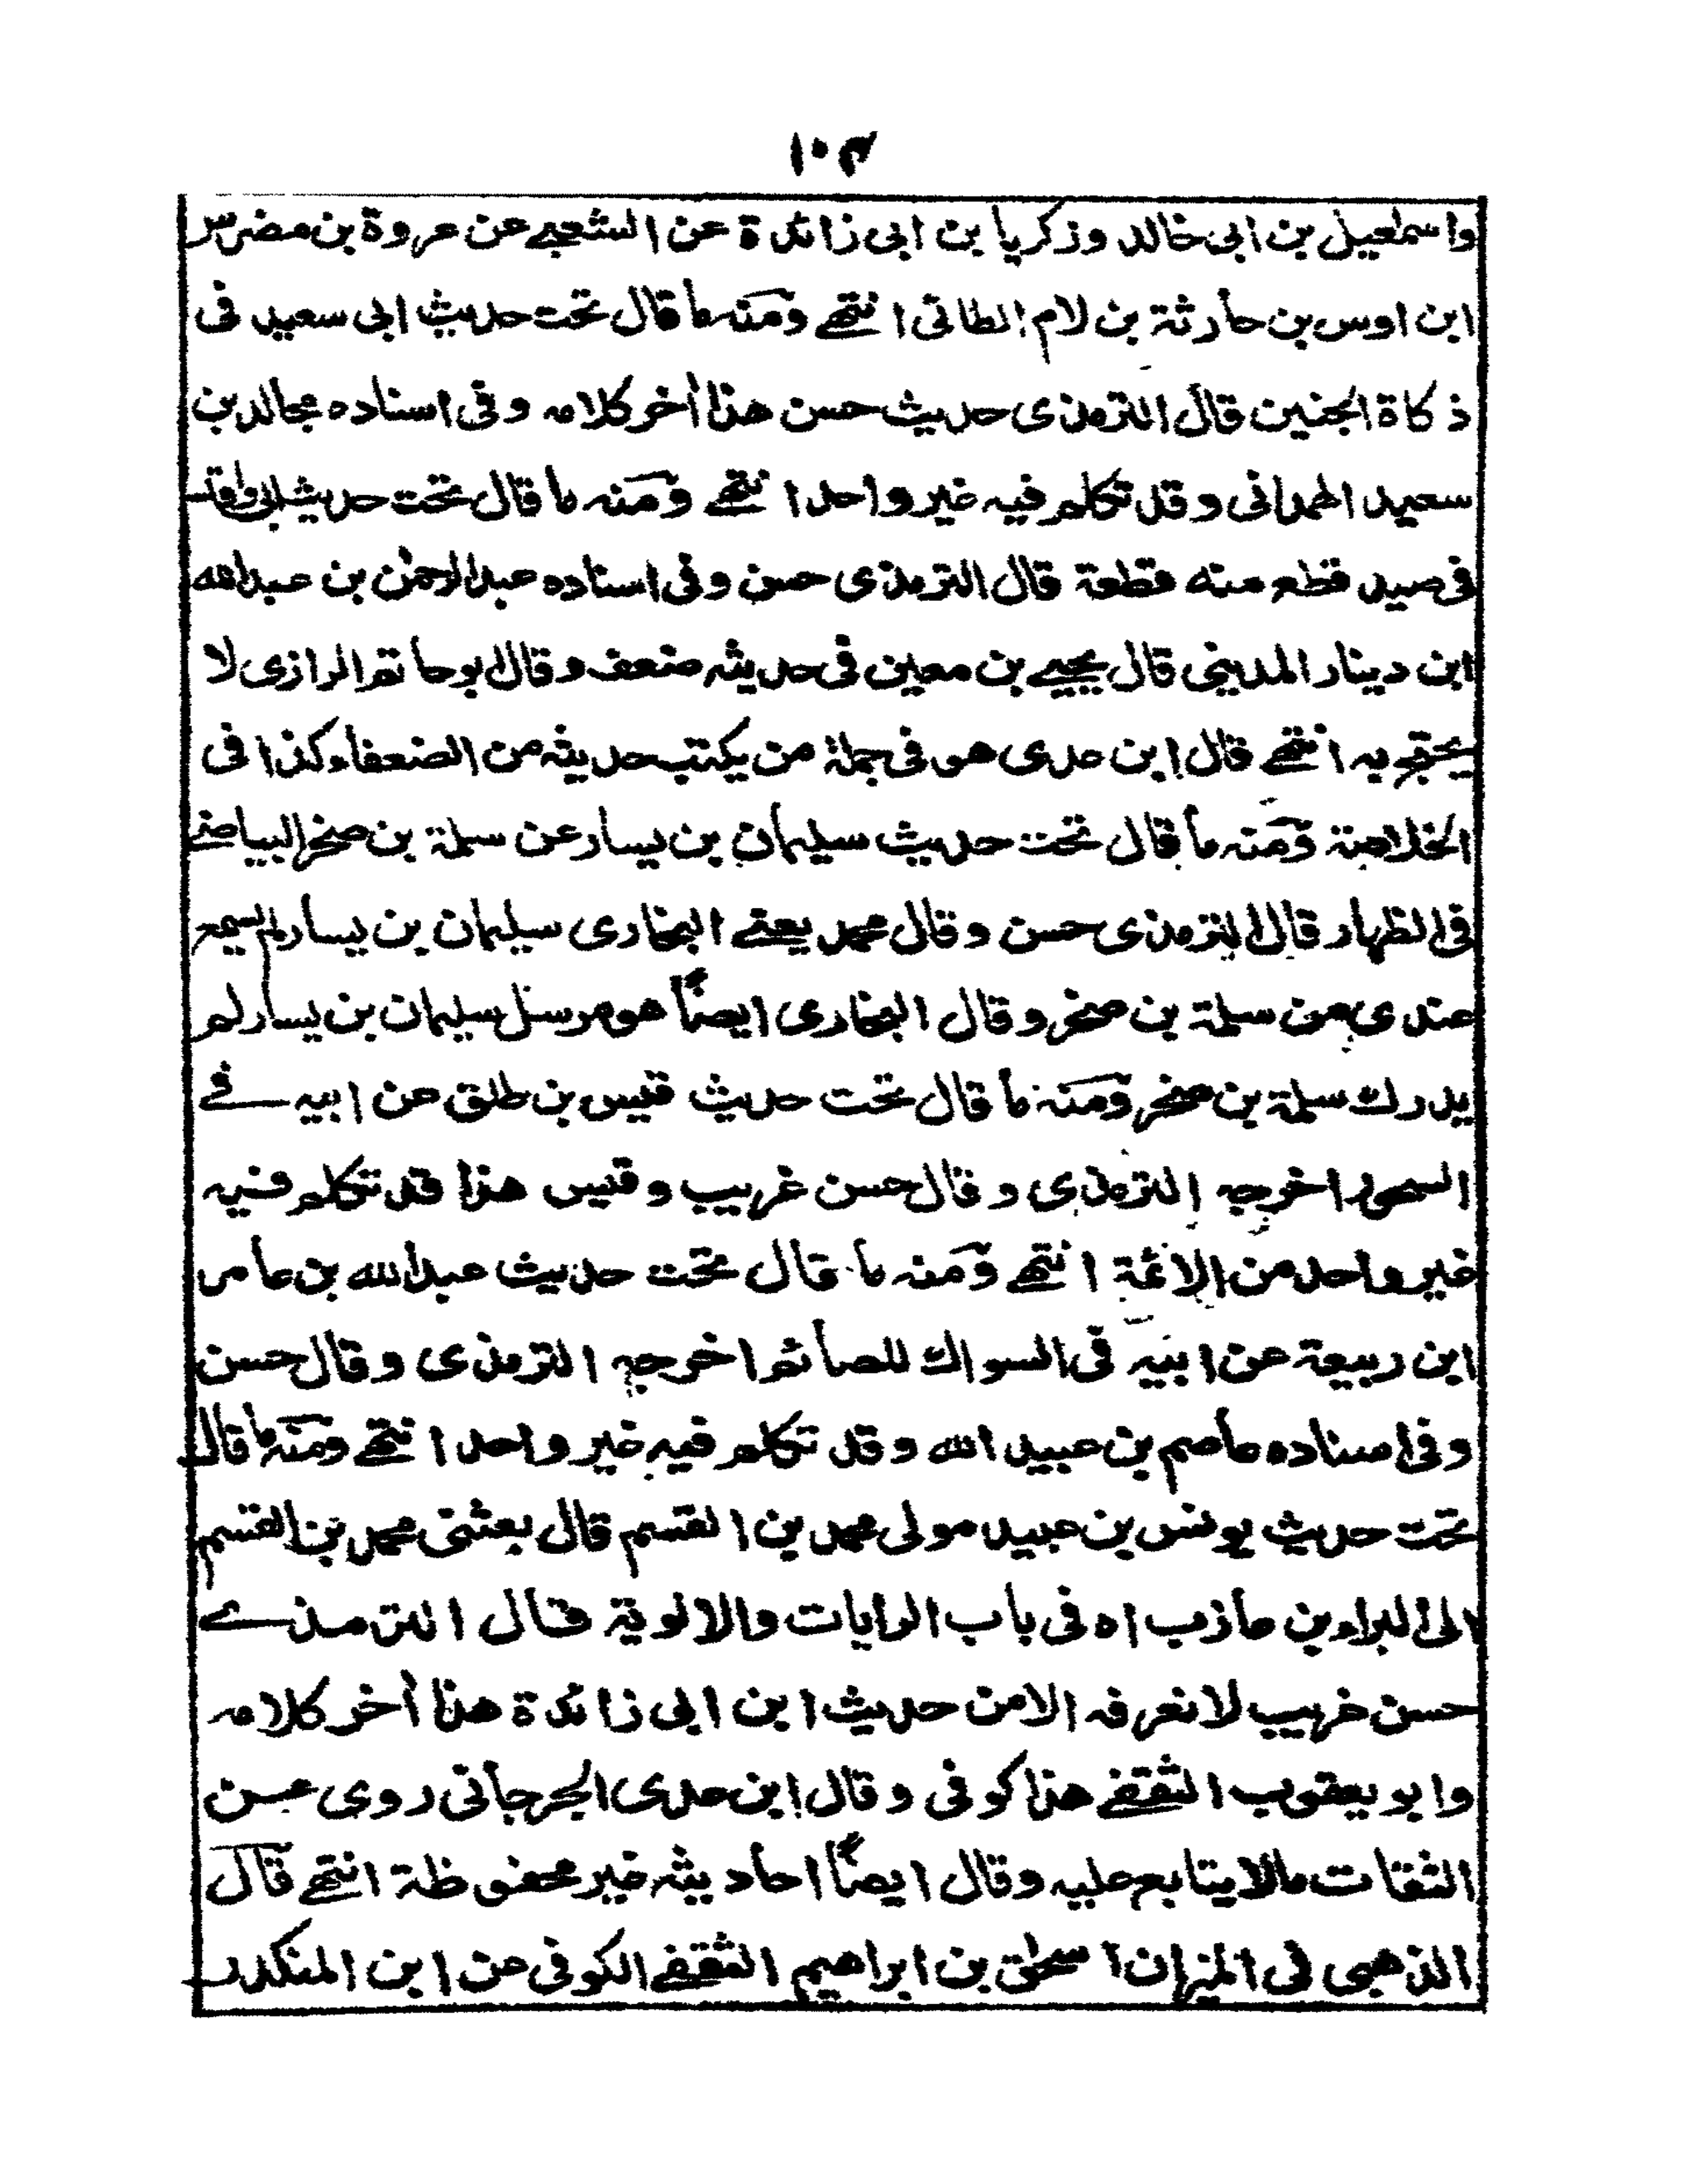 ١٠٣
واسمٰعيل بن ابى خالد وزكريا بن ابى زائدة عن الشعبے عن عروة بن مضرس
ابن اوس بن حارثة بن لام الطائى انتهے ومنه ما قال تحت حديث ابى سعيد فى
ذكاة الجنين قال الترمذى حديث حسن هذا اٰخر كلامه وفى اسناده مجالد بن
سعيد الهمدانى وقد تكلم فيه غير واحد انتهے ومنه ما قال تحت حديث ابى واقد
فى صيد قطع منه قطعة قال الترمذى حسن وفى اسناده عبد الرحمٰن بن عبد الله
ابن دينار المدينى قال يحيے بن معين فى حديثه ضعف وقال ابو حاتم الرازى لا
يحتج به انتهے قال ابن عدى هو فى جملة من يكتب حديثه من الضعفاء كذا فى
الخلاصة ومنه ما قال تحت حديث سليمان بن يسار عن سلمة بن صخر البياضے
فى الظهار قال الترمذى حسن وقال محمد يعنے البخارى سليمان بن يسار لم يسمع
عندى من سلمة بن صخر وقال البخارى ايضًا هو مرسل سليمان بن يسار لم
يدرك سلمة بن صخر ومنه ما قال تحت حديث قيس بن طلق عن ابيه فے
السحور اخرجه الترمذى وقال حسن غريب وقيس هذا قد تكلم فيه
غير واحد من الائمة انتهے ومنه ما قال تحت حديث عبد الله بن عامر
ابن ربيعة عن ابيه فى السواك للصائم اخرجه الترمذى وقال حسن
وفى اسناده عاصم بن عبيد الله وقد تكلم فيه غير واحد انتهے ومنه ما قال
تحت حديث يونس بن عبيد مولى محمد بن القسم قال بعثنى محمد بن القسم
الى البراء بن عازب اه فى باب الرايات والالوية قال الترمذے
حسن غريب لا نعرفه الا من حديث ابن ابى زائدة هذا اٰخر كلامه
وابو يعقوب الثقفے هذا كوفى وقال ابن عدى الجرجانى روى عن
الثقات مالا يتابع عليه وقال ايضًا احاديثه غير محفوظة انتهے قال
الذهبى فى الميزان اسحٰق بن ابراهيم الثقفے الكوفى عن ابن المنكدر